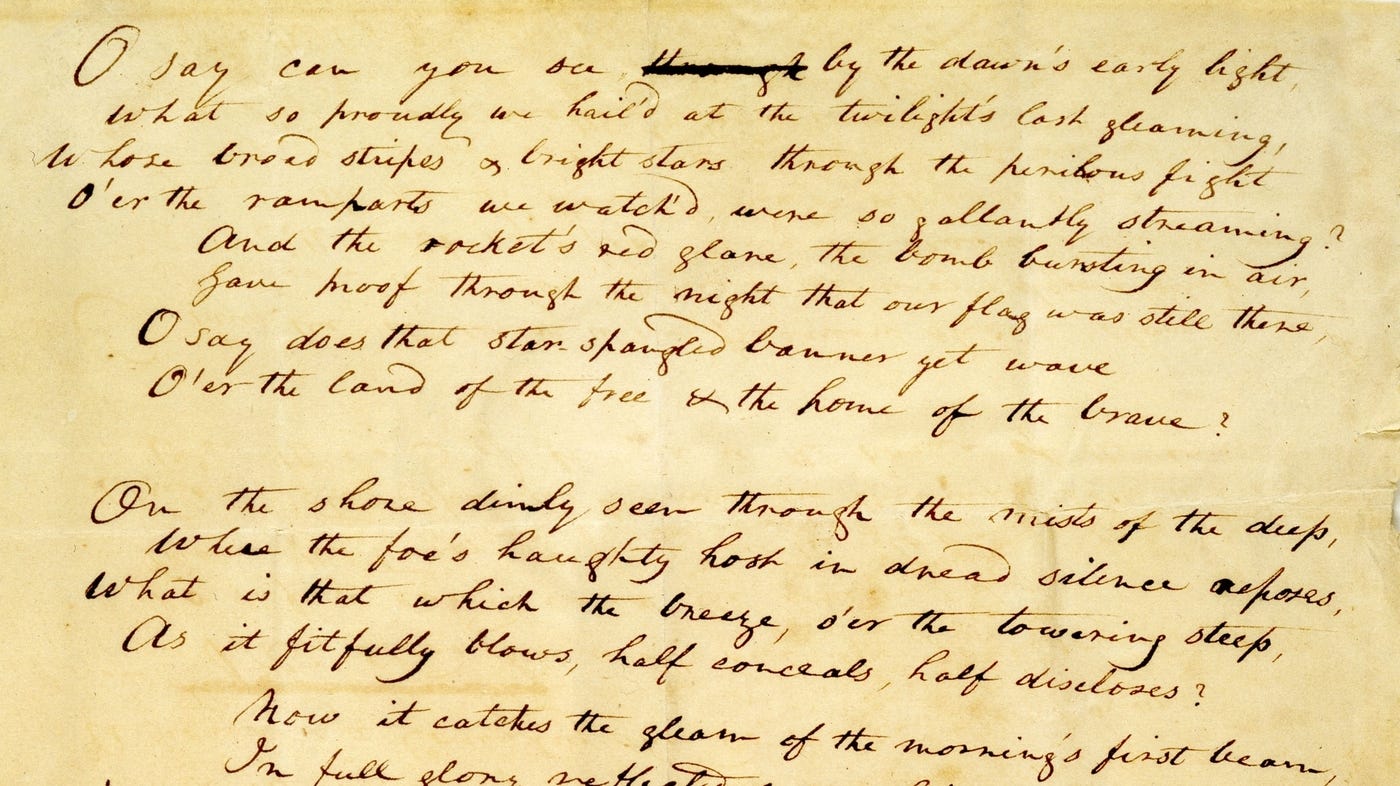 O say can you see ~~through~~ by the dawn's early light,
What so proudly we hail'd at the twilight's last gleaming,
Whose broad stripes & bright stars through the perilous fight
O'er the ramparts we watch'd, were so gallantly streaming?
And the rocket's red glare, the bomb bursting in air,
Gave proof through the night that our flag was still there,
O say does that star-spangled banner yet wave
O'er the land of the free & the home of the brave?
On the shore dimly seen through the mists of the deep,
Where the foe's haughty host in dread silence reposes,
What is that which the breeze, o'er the towering steep,
As it fitfully blows, half conceals, half discloses?
Now it catches the gleam of the morning's first beam,
In full glory reflected